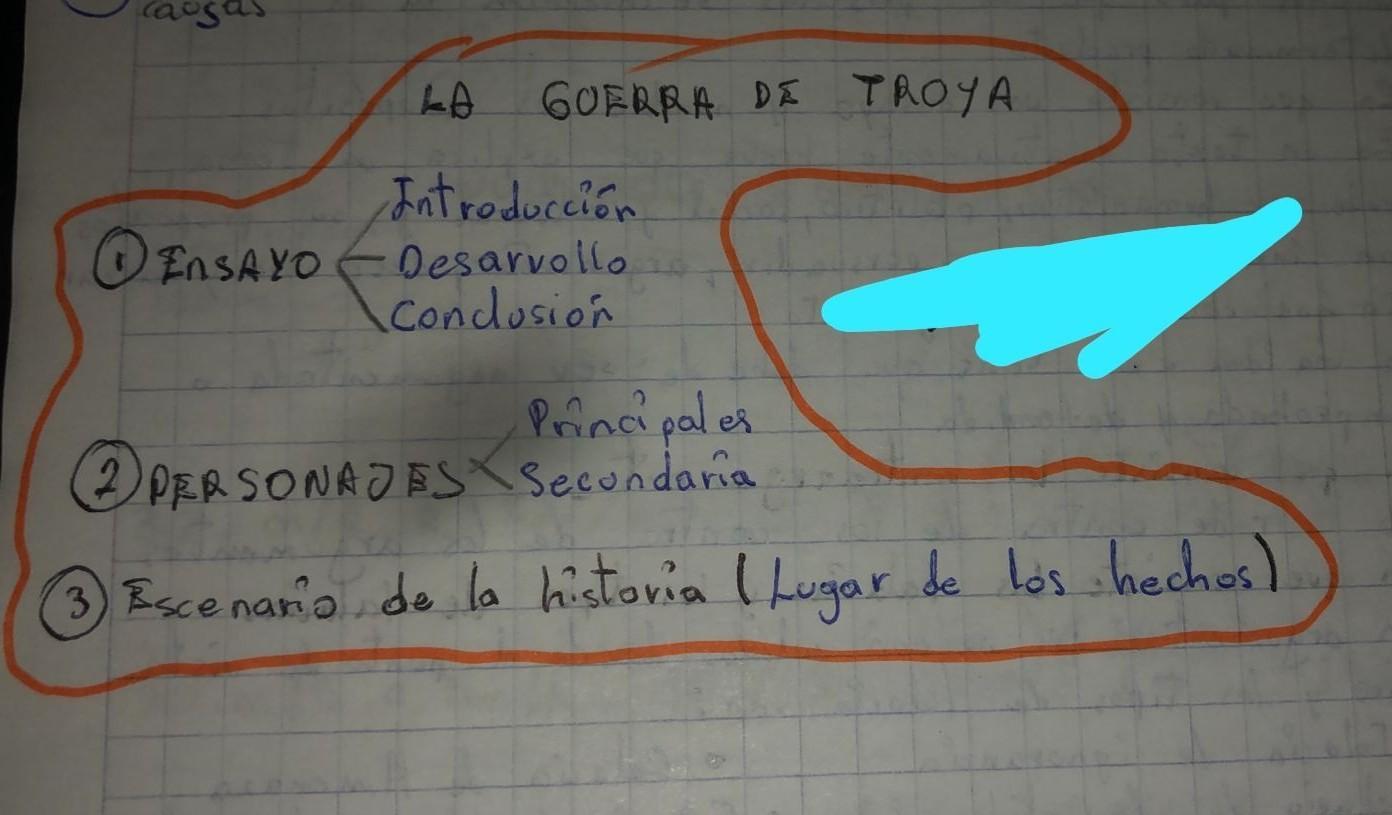 causas
LA GUERRA DE TROYA
① ENSAYO
Introducción
Desarrollo
Conclusión
② PERSONAJES
Principales
Secundaria
③ Escenario de la historia (Lugar de los hechos)